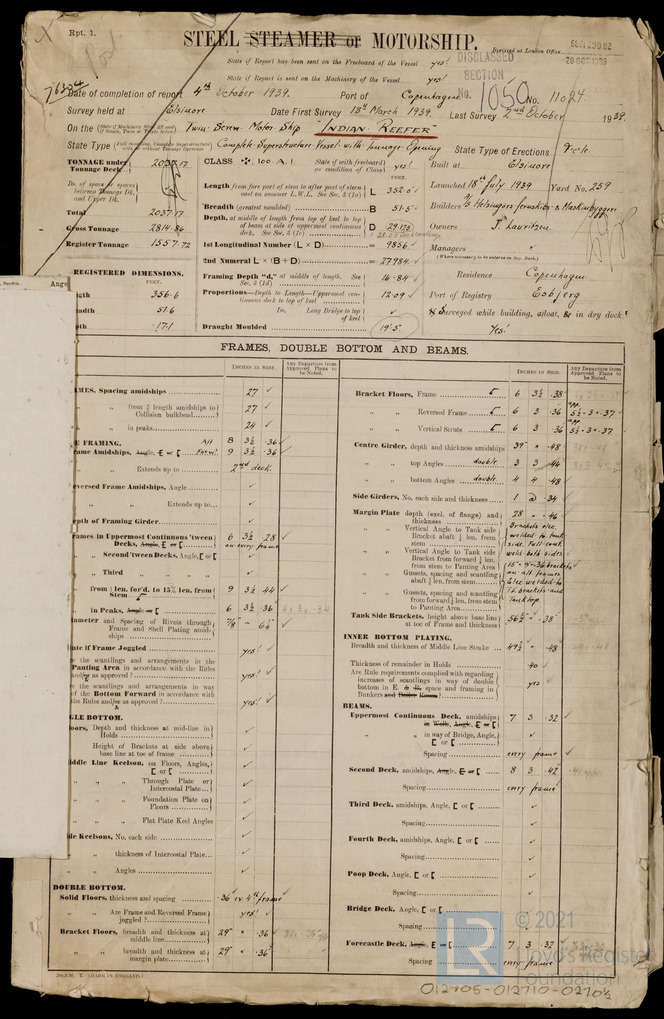 Rpt. 1.
STEEL STEAMER or MOTORSHIP.
Received at London Office
State if Report has been sent on the Freeboard of the Vessel yes!
State if Report is sent on the Machinery of the Vessel yes!
DISCLASSED SECTION
Date of completion of report 4th October 1939. Port of Copenhagen No. 11024.
No. 1050
Survey held at Elsinore Date First Survey 18th March 1939. Last Survey 2nd October 1939.
On the Twin Screw Motor Ship "INDIAN REEFER"
State Type Complete Superstructure Vessel with Tonnage Opening State Type of Erections
TONNAGE under Tonnage Deck 2037.17
CLASS 100 A.1. State if with freeboard as condition of Class yes!
Built at Elsinore
Launched 18th July 1939 Yard No. 259
Length from fore part of stem to after part of stern post on summer L.W.L. See Sec. 2 (1a) L
Breadth (greatest moulded) B 51.5
Builders A/S Helsingørs
Total 2037.17
Depth, at middle of length from top of keel to top of beam at side of uppermost continuous deck. See Sec. 2 (1c) D
Owners J. Lauritzen
Gross Tonnage 2814.86
Register Tonnage 1557.72
1st Longitudinal Number (L × D) = 9856
Managers
2nd Numeral L × (B + D) = 27984
REGISTERED DIMENSIONS.
FEET.
Framing Depth "d," at middle of length. See Sec. 2 (1d) 16.84
Residence Copenhagen
356.6
Proportions—Depth to Length—Uppermost continuous deck to top of keel 12.09
Port of Registry Esbjerg
51.6
Do. Long Bridge to top of keel
Surveyed while building, afloat, & in dry dock.
Yes!
17.1
Draught Moulded 19'5
FRAMES, DOUBLE BOTTOM AND BEAMS.
INCHES IN SHIP.
Any Departure from Approved Plans to be Noted.
INCHES IN SHIP.
Any Departure from Approved Plans to be Noted.
Spacing amidships 27
from 3/5 length amidships to Collision bulkhead 27
in peaks 24
FRAMING. Aft 8 3½ .36
Frame Amidships, Angle, E or [ 9 3½ .36
Extends up to 2nd deck
Reversed Frame Amidships, Angle
Extends up to
Depth of Framing Girder
Frames in Uppermost Continuous 'tween Decks, Angle, E or [ 6 3½ .28
on every frame
Second 'tween Decks, Angle, [ or [
Third
from ¼ len. for'd. to 15% len. from Stem 9 3½ .44
in Peaks, Angle or [ 6 3½ .36
Diameter and Spacing of Rivets through Frame and Shell Plating amidships 7/8
State if Frame Joggled yes!
the scantlings and arrangements in the Panting Area in accordance with the Rules and/or as approved? yes!
the scantlings and arrangements in way of the Bottom Forward in accordance with the Rules and/or as approved? yes!
SINGLE BOTTOM.
Floors, Depth and thickness at mid-line in Holds
Height of Brackets at side above base line at toe of frame
Middle Line Keelson, on Floors, Angles, [ or [
Through Plate or Intercostal Plate
Foundation Plate on Floors
Flat Plate Keel Angles
Side Keelsons, No. each side
thickness of Intercostal Plate
Angles
DOUBLE BOTTOM.
Solid Floors, thickness and spacing .36 ev. 4th frame
Are Frame and Reversed Frame joggled? yes!
Bracket Floors, breadth and thickness at middle line 29" .36
breadth and thickness at margin plate 29" .36
Bracket Floors, Frame 6 3½ .38
Reversed Frame 6 3 .36
Vertical Struts 6 3 .36
Centre Girder, depth and thickness amidships 39" .48
top Angles double 3 3 .44
bottom Angles double 4 4 .48
Side Girders, No. each side and thickness 1 @ .34
Margin Plate depth (excl. of flange) and thickness 28 .46
Vertical Angle to Tank side Bracket abaft ¼ len. from stem
Vertical Angle to Tank side Bracket from forward ¼ len. from stem to Panting Area
Gussets, spacing and scantling abaft ¼ len. from stem
Gussets, spacing and scantling from forward ¼ len. from stem to Panting Area
Brackets elec. welded to tank side. Full cont. weld both sides
Tank Side Brackets, height above base line at toe of Frame and thickness 56½ .38
INNER BOTTOM PLATING.
Breadth and thickness of Middle Line Strake 49½ .48
Thickness of remainder in Holds .40
Are Rule requirements complied with regarding increases of scantlings in way of double bottom in E. & B. space and framing in Bunkers and Boiler Room? yes
BEAMS.
Uppermost Continuous Deck, amidships in Wells, Angle, E or [ 7 3 .32
in way of Bridge, Angle, [ or [
Spacing every frame
Second Deck, amidships, Angle, E or [ 8 3 .42
Spacing every frame
Third Deck, amidships, Angle, [ or [
Spacing
Fourth Deck, amidships, Angle, [ or [
Spacing
Poop Deck, Angle, [ or [
Spacing
Bridge Deck, Angle, [ or [
Spacing
Forecastle Deck, Angle, E or [ 7 3 .32
Spacing every frame
(MADE IN ENGLAND.)
LR
© 2021
Lloyd's Register
Foundation